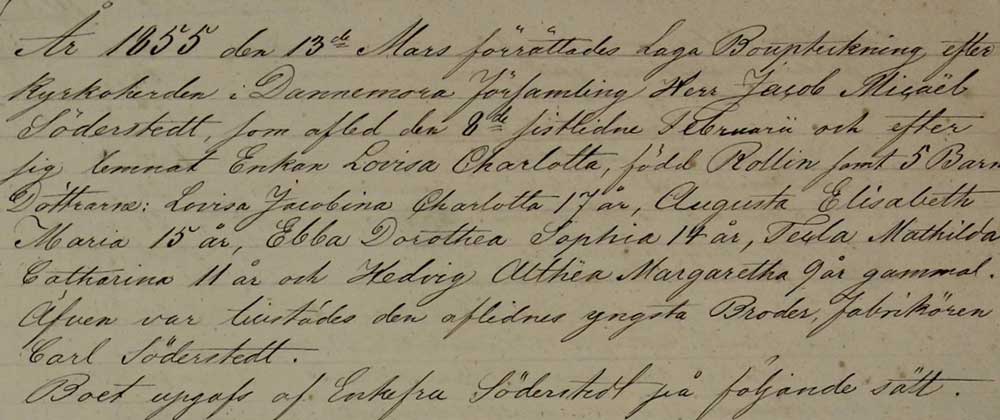 År 1855 den 13de Mars förrättades Laga Boupteckning efter
Kyrkoherden i Dannemora Församling Herr Jacob Micaël
Söderstedt, som afled den 8de sistlidne Februarii och efter
sig lemnat Enkan Lovisa Charlotta, född Rollin samt 5 Barn
Döttrarne: Lovisa Jacobina Charlotta 17 år, Augusta Elisabeth
Maria 15 år, Ebba Dorothea Sophia 14 år, Tecla Mathilda
Catharina 11 år och Hedvig Althëa Margaretha 9 år gammal.
Äfven var tillstädes den aflidnes yngsta Broder, Fabrikören
Carl Söderstedt.
Boet upgafs af Enkefru Söderstedt på följande sätt.